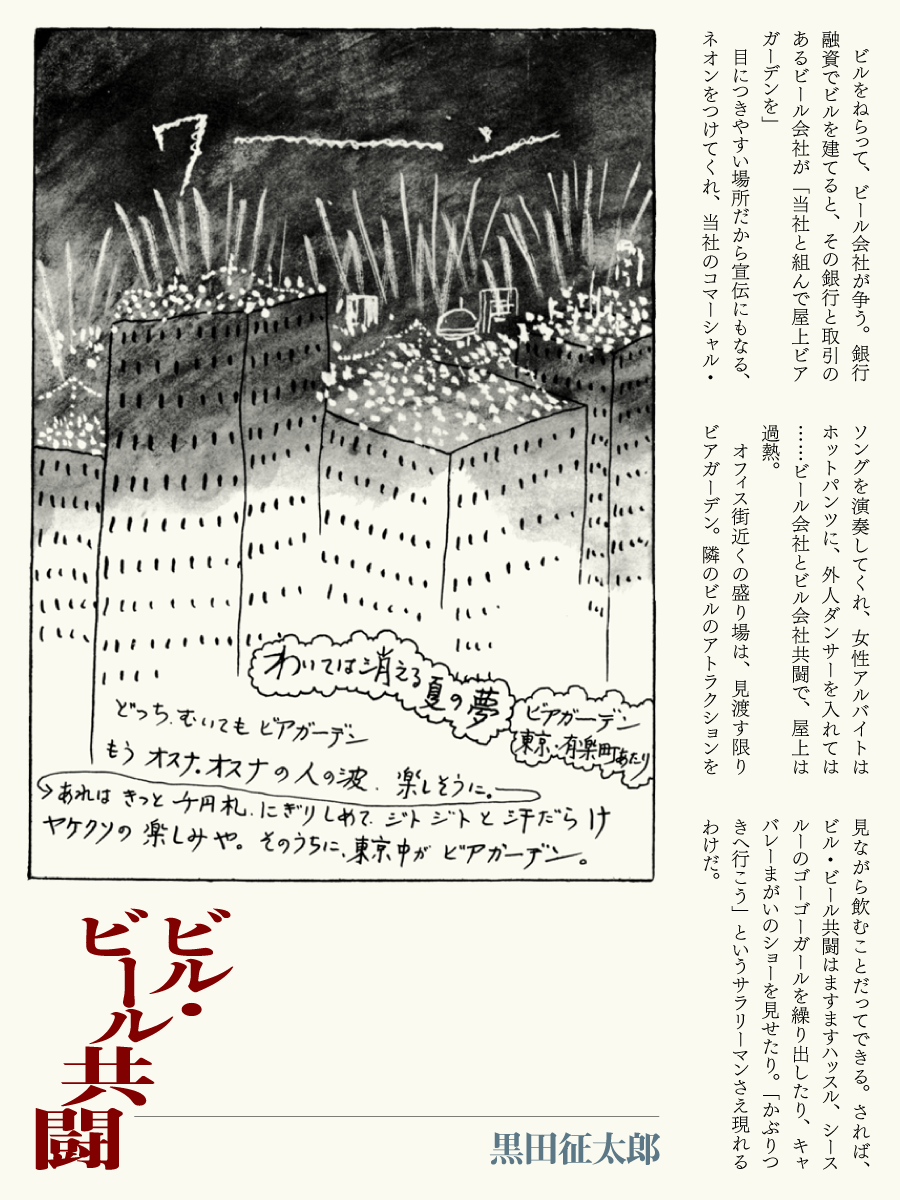 ビルをねらって、ビール会社が争う。銀行
融資でビルを建てると、その銀行と取引の
あるビール会社が「当社と組んで屋上ビア
ガーデンを」
目につきやすい場所だから宣伝にもなる、
ネオンをつけてくれ、当社のコマーシャル・
ソングを演奏してくれ、女性アルバイトは
ホットパンツに、外人ダンサーを入れては
……ビール会社とビル会社共闘で、屋上は
過熱。
オフィス街近くの盛り場は、見渡す限り
ビアガーデン。隣のビルのアトラクションを
見ながら飲むことだってできる。されば、
ビル・ビール共闘はますますハッスル、シース
ルーのゴーゴーガールを繰り出したり、キャ
バレーまがいのショーを見せたり。「かぶりつ
きへ行こう」というサラリーマンさえ現れる
わけだ。
ワーーン
わいては消える
夏の夢
ビアガーデン
東京・有楽町あたり
どっち、むいても ビアガーデン
もう オスナ・オスナ の 人の波、楽しそうに。
あれは きっと 千円札、にぎりしめて、ジト ジト と 汗だらけ
ヤケクソの 楽しみや。そのうちに、東京中が ビアガーデン。
ビル・
ビール共闘
黒田征太郎